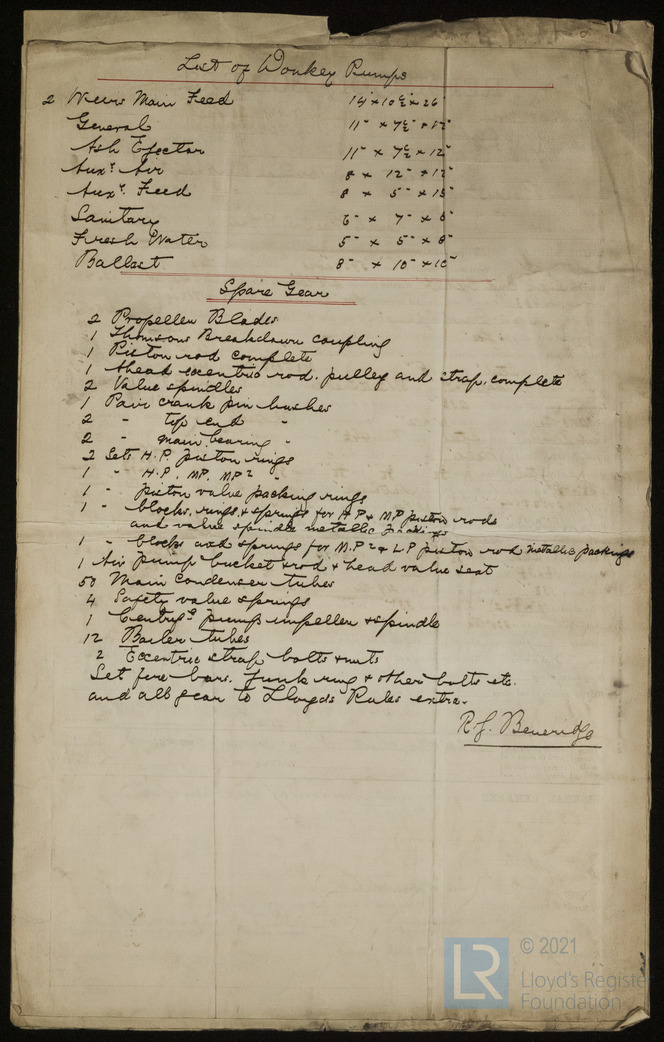 List of Donkey Pumps
2 Weirs Main Feed 14" x 10½ x 26"
General 11" x 7½" x 12"
Ash Ejector 11" x 7½ x 12"
Auxy Air 8 x 12" x 12"
Auxy Feed 8 x 5" x 15"
Sanitary 6" x 7" x 8"
Fresh Water 5" x 5" x 8"
Ballast 8" x 10" x 10"
Spare Gear
2 Propeller Blades
1 Thomsons Breakdown coupling
1 Piston rod complete
1 Ahead eccentric rod, pulley and strap, complete
2 Valve spindles
1 Pair crank pin bushes
2 " top end "
2 " main bearing "
2 Sets H.P. piston rings
1 " H.P. MP. MP2 "
1 " piston valve packing rings
1 " blocks, rings, & springs for HP & MP piston rods
and valve spindle metallic packings
1 " blocks and springs for M.P2 & LP piston rod metallic packings
1 Air pump bucket & rod & head valve seat
50 Main Condenser tubes
4 Safety valve springs
1 Centrifgl pump impeller & spindle
12 Boiler tubes
2 Eccentric strap bolts & nuts
Set fire bars. Junk ring & other bolts etc.
and all gear to Lloyds Rules extra.
R. J. Beveridge
LR © 2021
Lloyd's Registe
Foundation